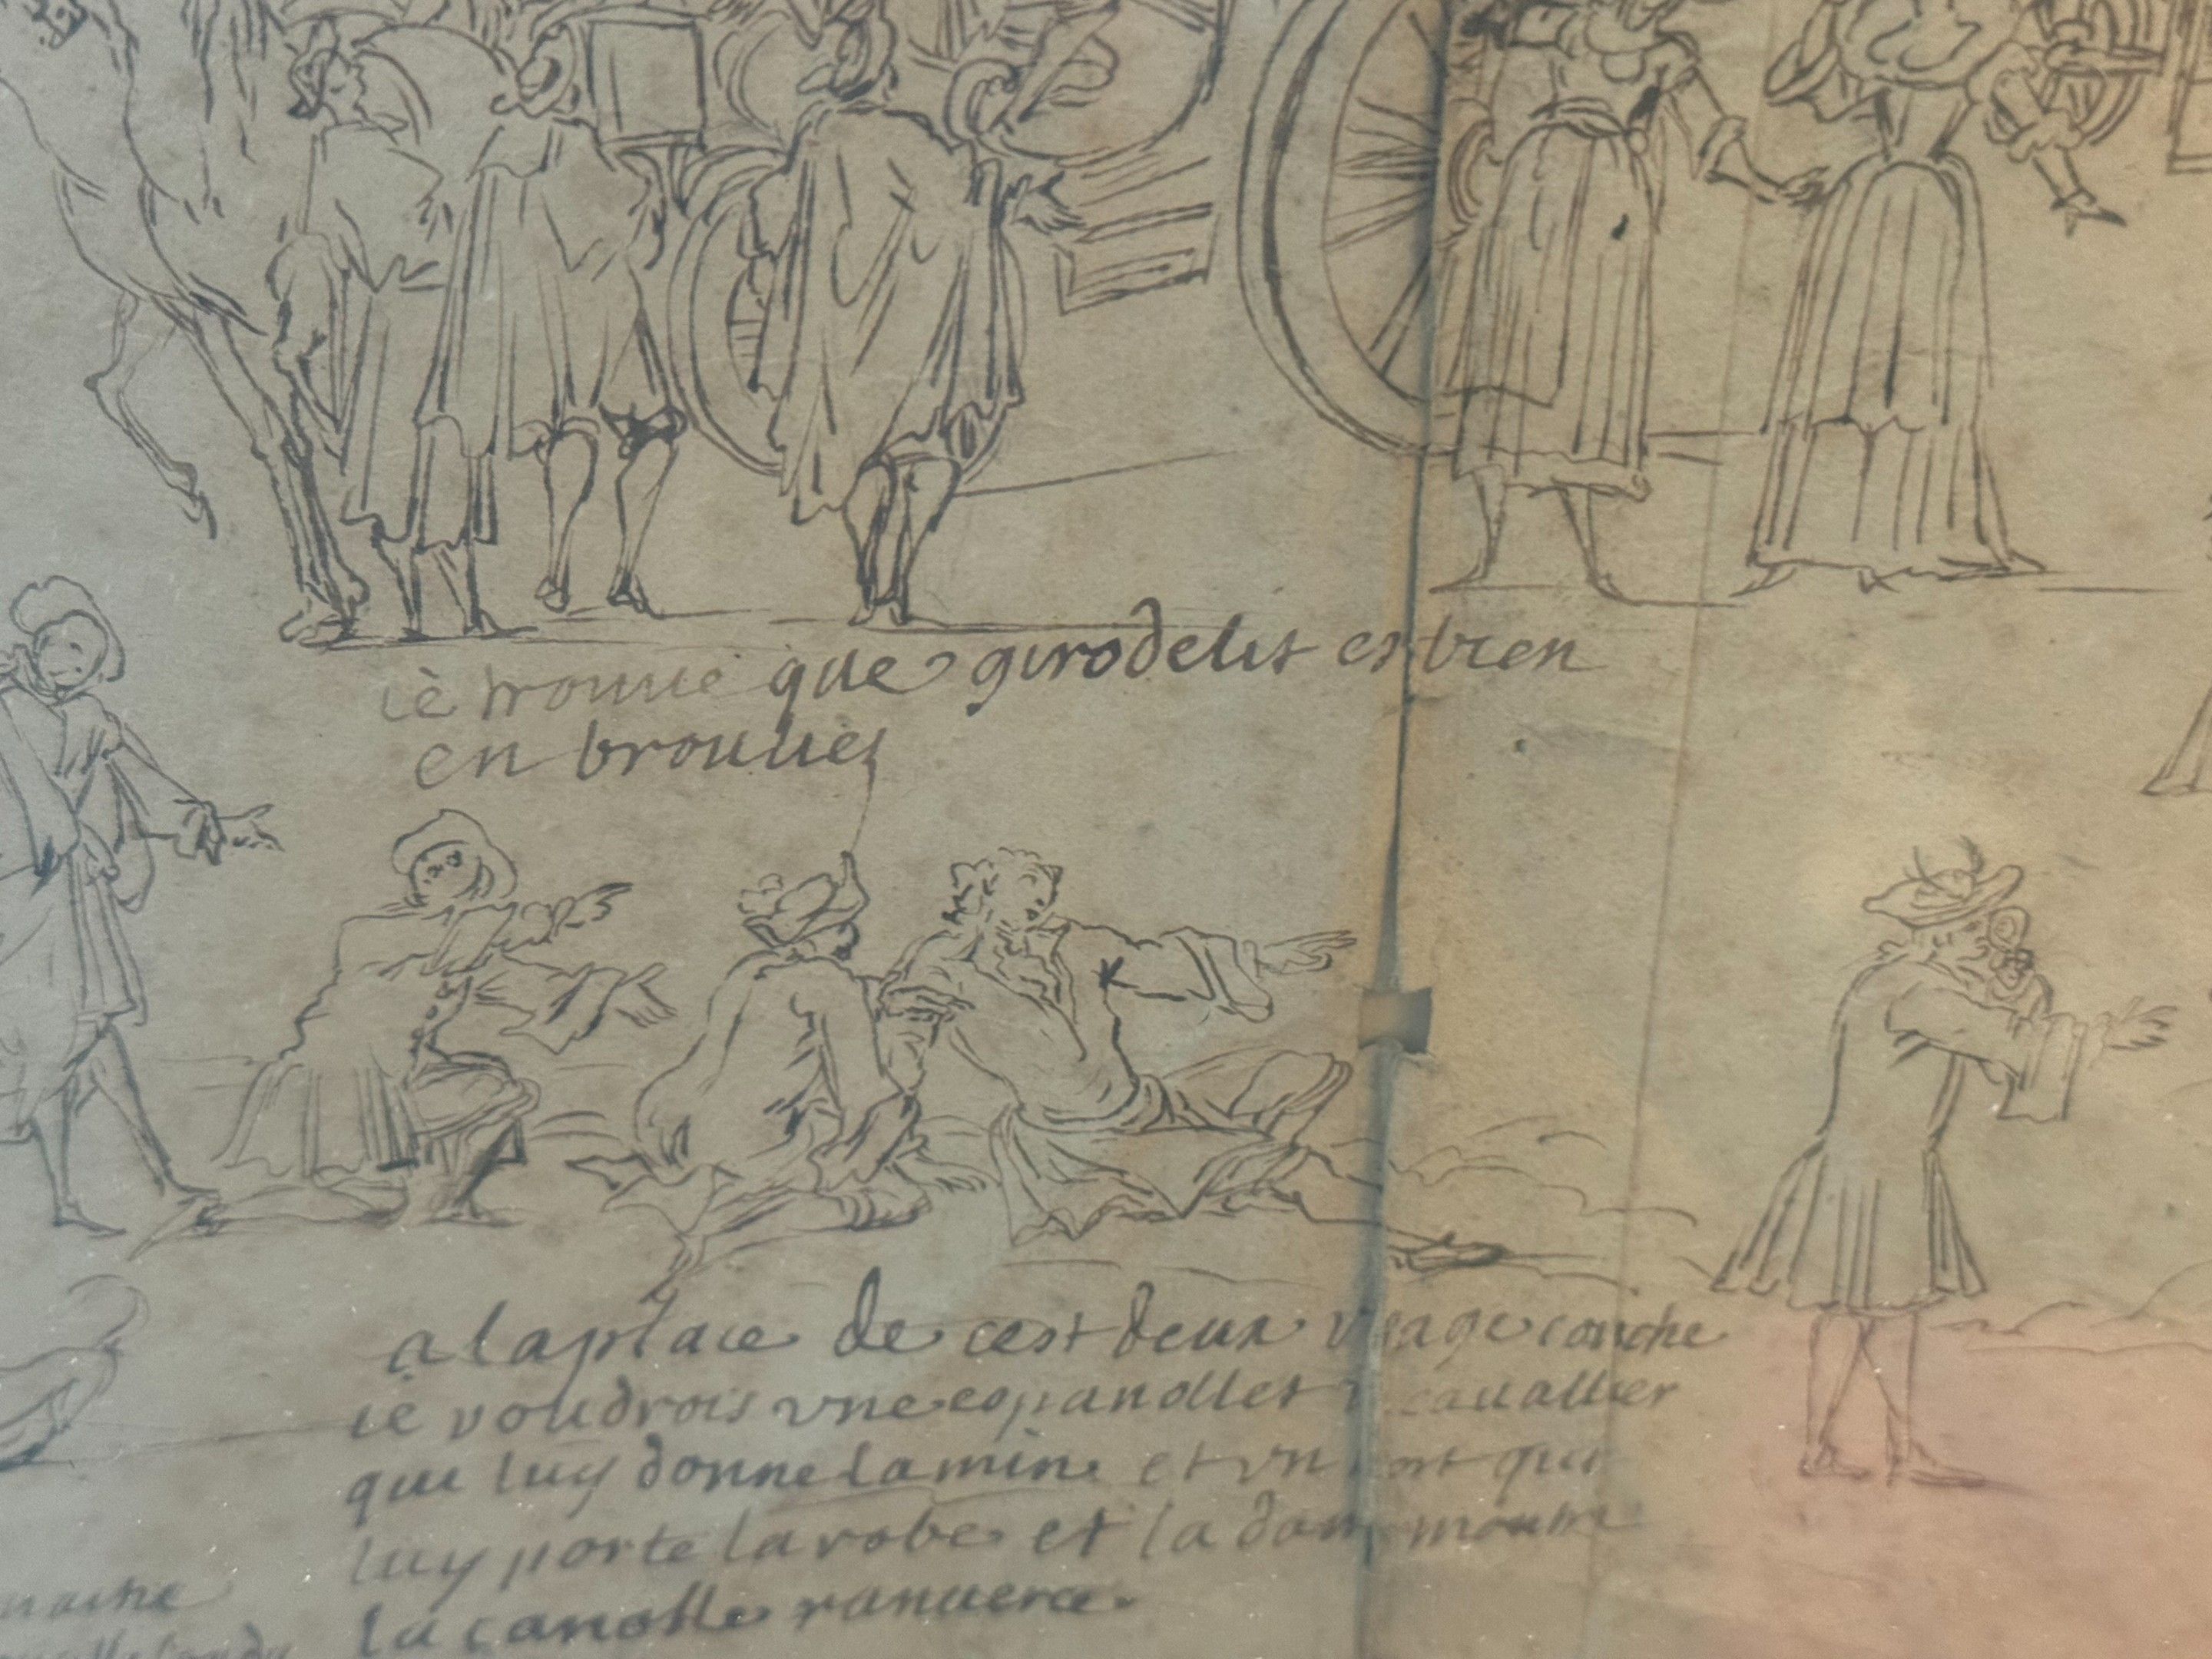 iè trouue que girodelet est bien
en brouues
a la place de cest deux visage couche
ie voudrois vne espanollet caualler
qui luy donne la min et vn qui
luy porte la robe et la dam
la canolle ranuerce